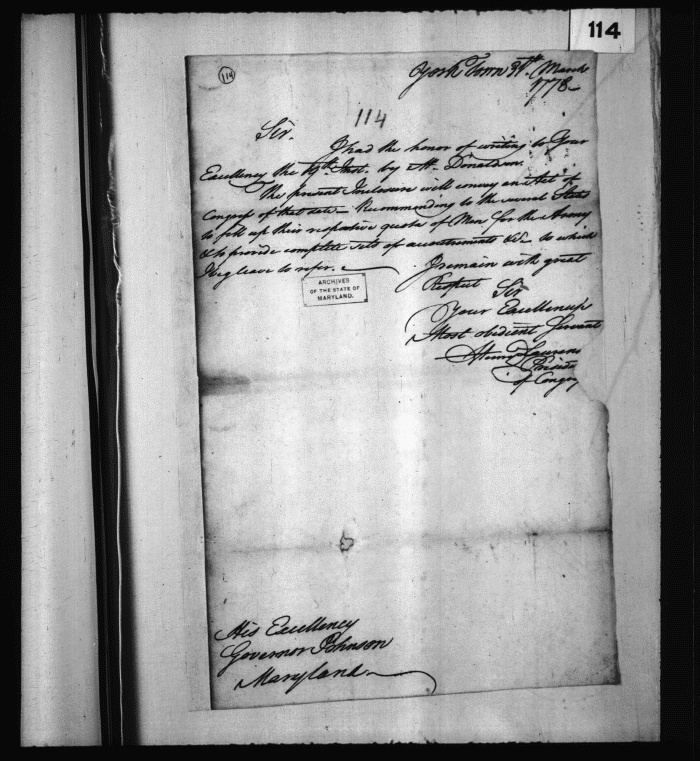 114
114
York Town 31st March
1778-
114
Sir.
I had the honor of writing to Your
Excellency the 19th Inst. by Mr. Donaldson
The present Inclosure will convey an Act of
Congress of that date - Recommending to the several States
to fill up their respective quotas of Men for the Army
& to provide complete sets of accoutrements &c. to which
I beg leave to refer.
I remain with great
Respect
Sir
Your Excellencys
Most obedient Servant
Henry Laurens
Presidt
of Congrs
ARCHIVES
OF THE STATE OF
MARYLAND.
His Excellency
Governor Johnson
Maryland